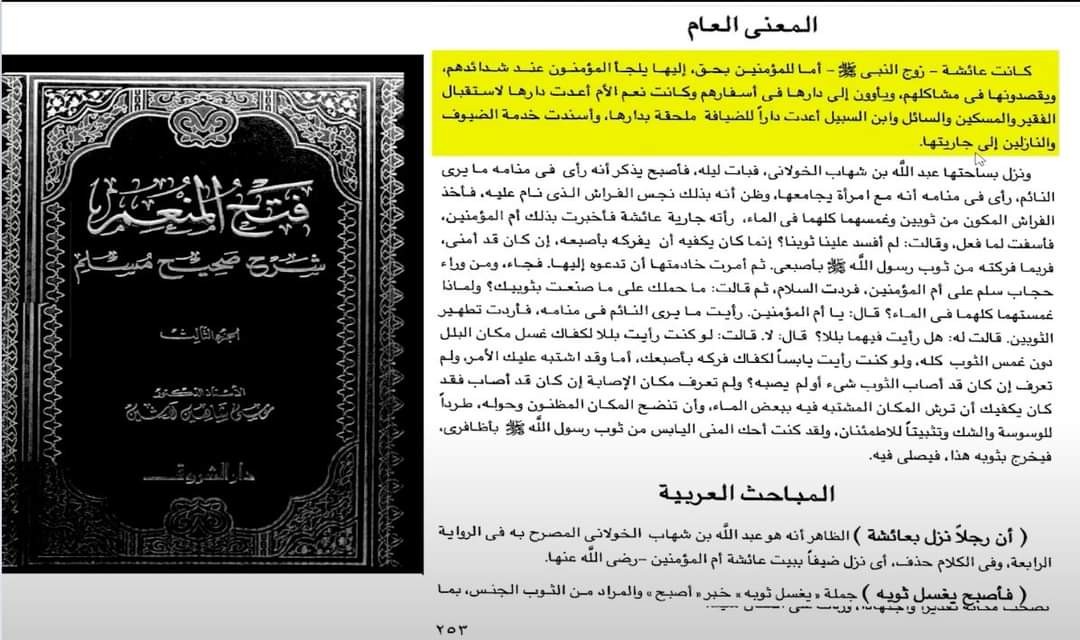 المعنى العام
كانت عائشة – زوج النبى ﷺ – أما للمؤمنين بحق، إليها يلجأ المؤمنون عند شدائدهم،
ويقصدونها فى مشاكلهم، ويأوون إلى دارها فى أسفارهم وكانت نعم الأم أعدت دارها لاستقبال
الفقير والمسكين والسائل وابن السبيل أعدت داراً للضيافة ملحقة بدارها، وأسندت خدمة الضيوف
والنازلين إلى جاريتها.
ونزل بساحتها عبد الله بن شهاب الخولانى، فبات ليله، فأصبح يذكر أنه رأى فى منامه ما يرى
النائم، رأى فى منامه أنه مع امرأة يجامعها، وظن أنه بذلك نجس الفراش الذى نام عليه، فأخذ
الفراش المكون من ثوبين وغمسهما كلهما فى الماء، رأته جارية عائشة فأخبرت بذلك أم المؤمنين،
فأسفت لما فعل، وقالت: لم أفسد علينا ثوبنا؟ إنما كان يكفيه أن يفركه بأصبعه، إن كان قد أمنى،
فربما فركته من ثوب رسول الله ﷺ بأصبعى. ثم أمرت خادمتها أن تدعوه إليها. فجاء، ومن وراء
حجاب سلم على أم المؤمنين، فردت السلام، ثم قالت: ما حملك على ما صنعت بثوبيك؟ ولماذا
غمستهما كلهما فى الماء؟ قال: يا أم المؤمنين. رأيت ما يرى النائم فى منامه، فأردت تطهير
الثوبين. قالت له: هل رأيت فيهما بللا؟ قال: لا. قالت: لو كنت رأيت بللا لكفاك غسل مكان البلل
دون غمس الثوب كله، ولو كنت رأيت يابساً لكفاك فركه بأصبعك، أما وقد اشتبه عليك الأمر، ولم
تعرف إن كان قد أصاب الثوب شىء أو لم يصبه؟ ولم تعرف مكان الإصابة إن كان قد أصاب فقد
كان يكفيك أن ترش المكان المشتبه فيه ببعض الماء، وأن تنضح المكان المظنون وحوله، طرداً
للوسوسة والشك وتثبيتاً للاطمئنان، ولقد كنت أحك المنى اليابس من ثوب رسول الله ﷺ بأظافرى،
فيخرج بثوبه هذا، فيصلى فيه.
المباحث العربية
( أن رجلاً نزل بعائشة ) الظاهر أنه هو عبد الله بن شهاب الخولانى المصرح به فى الرواية
الرابعة، وفى الكلام حذف، أى نزل ضيفاً ببيت عائشة أم المؤمنين –رضى الله عنها.
( فأصبح يغسل ثوبه ) جملة « يغسل ثوبه » خبر « أصبح » والمراد من الثوب الجنس، بما
٢٥٣
فتح المنعم
شرح صحيح مسلم
الجزء الثالث
الأستاذ الدكتور
موسى شاهين لاشين
دار الشروق